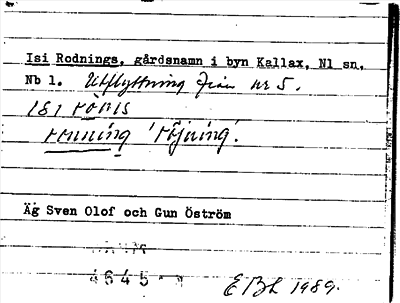 Isi Rodnings, gårdsnamn i byn Kallax, Nl sn,
Nb l. Utflyttning från nr 5.
ısı rö̀nıs
rönning 'röjning'.
Äg Sven Olof och Gun Öström
4645
EBL 1989.